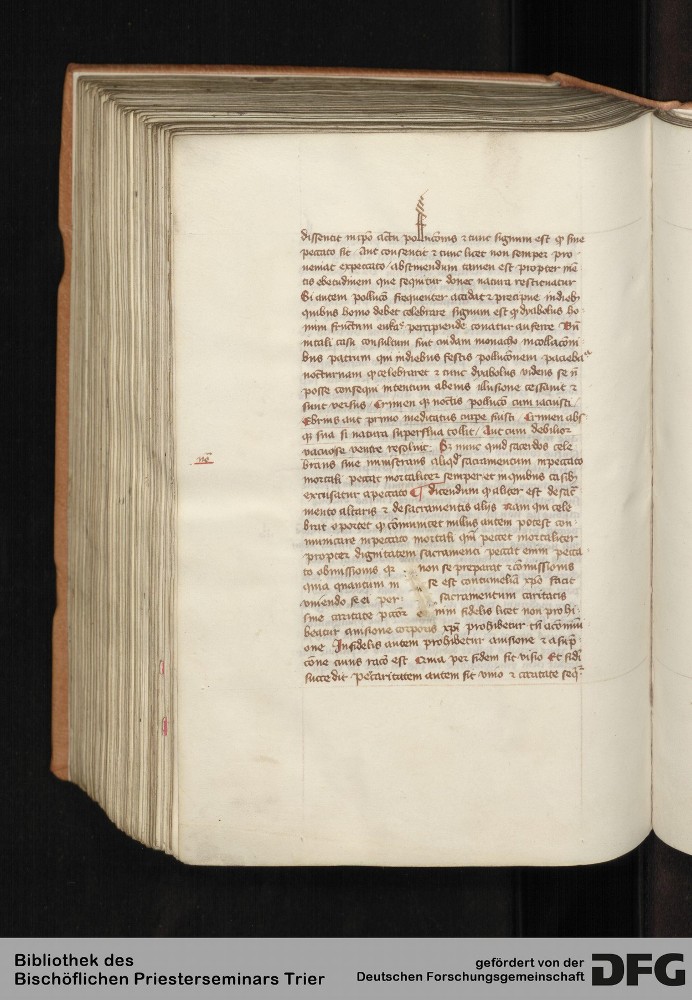 dissentit in ipō actu pollucōnis ⁊ tunc signum est qꝫ sine
peccato sit Aut consentit ⁊ tunc licet non semper pro
ueniat ex peccato abstinendum tamen est propter mē
tis ebetudinem que sequitur donec natura restituatur
Si autem pollucō frequenter accidat ⁊ precipue in dieb
quibus homo debet celebrare signum est qꝫ dyabolus ho
mini fructum percipiende conatur auferre Vn̄
in tali casu consultum fuit cuidam monacho in collacōni
bus patrum qui in diebus festis pollucōnem pacieba
nocturnam qꝫ celebraret ⁊ tunc dyabolus videns se n̄
posse consequi intentum ab eius illusione cessauit ⁊
sunt versus Crimen qꝫ noctis pollucō cum iacuisti
Ebrius aut primo meditatus turpe fuisti Crimen abs
qꝫ sua si natura superflua tollit Aut cum debilior
vacuose ventre resoluit Sꝫ nunc quid sacerdos cele
brans siue ministrans aliqd sacramentum in peccato
mortali peccat mortaliter semper et in quibus casib
excusatur a peccato dicendum qꝫ aliter est de sac
mento altaris ⁊ de sacramentis alijs Nam qui cele
brat oportet qꝫ cōmunicet nullus autem potest con
municare in peccato mortali qui peccet mortaliter
propter dignitatem sacramenti peccat enim pecca
to obmissionis qꝫ non se preparat ⁊ cōmissionis
quia quantum in se est contumeliā xp̄o facit
vniendo se ei per sacramentum caritatis
sine caritate fidelis licet non prohi
beatur a visione corporis xp̄i prohibetur tn̄ a cōmuni
one Infidelis autem prohibetur a visione ⁊ a sūp
cōne cuius racō est Quia per fidem fit visio Et fidē
succedit Per caritatem autem fit vnio ⁊ caritate seq
nō
Bibliothek des
Bischöflichen Priesterseminars Trier
gefördert von der
Deutschen Forschungsgemeinschaft
DFG